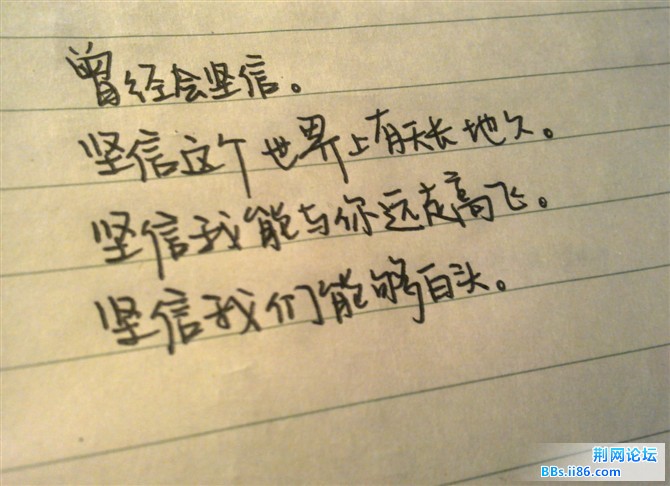 曾经会坚信。
坚信这个世界上有天长地久。
坚信我能与你远走高飞。
坚信我们能够白头。
荆网论坛
BBs.ii86.com